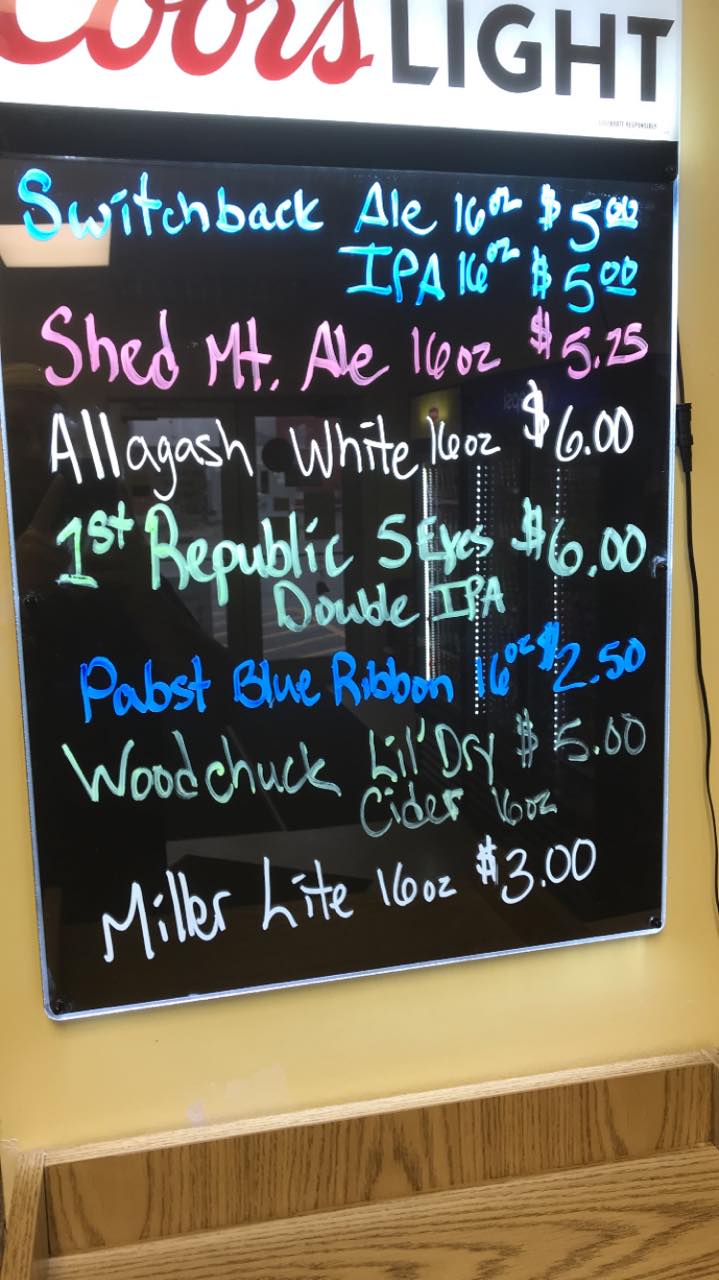 Coors LIGHT
Switchback Ale 16oz $5.00
IPA 16oz $5.00
Shed Mt. Ale 16oz $5.25
Allagash White 16oz $6.00
1st Republic 5 Eyes $6.00
Double IPA
Pabst Blue Ribbon 16oz $2.50
Woodchuck Lil' Dry $5.00
Cider 16oz
Miller Lite 16oz $3.00